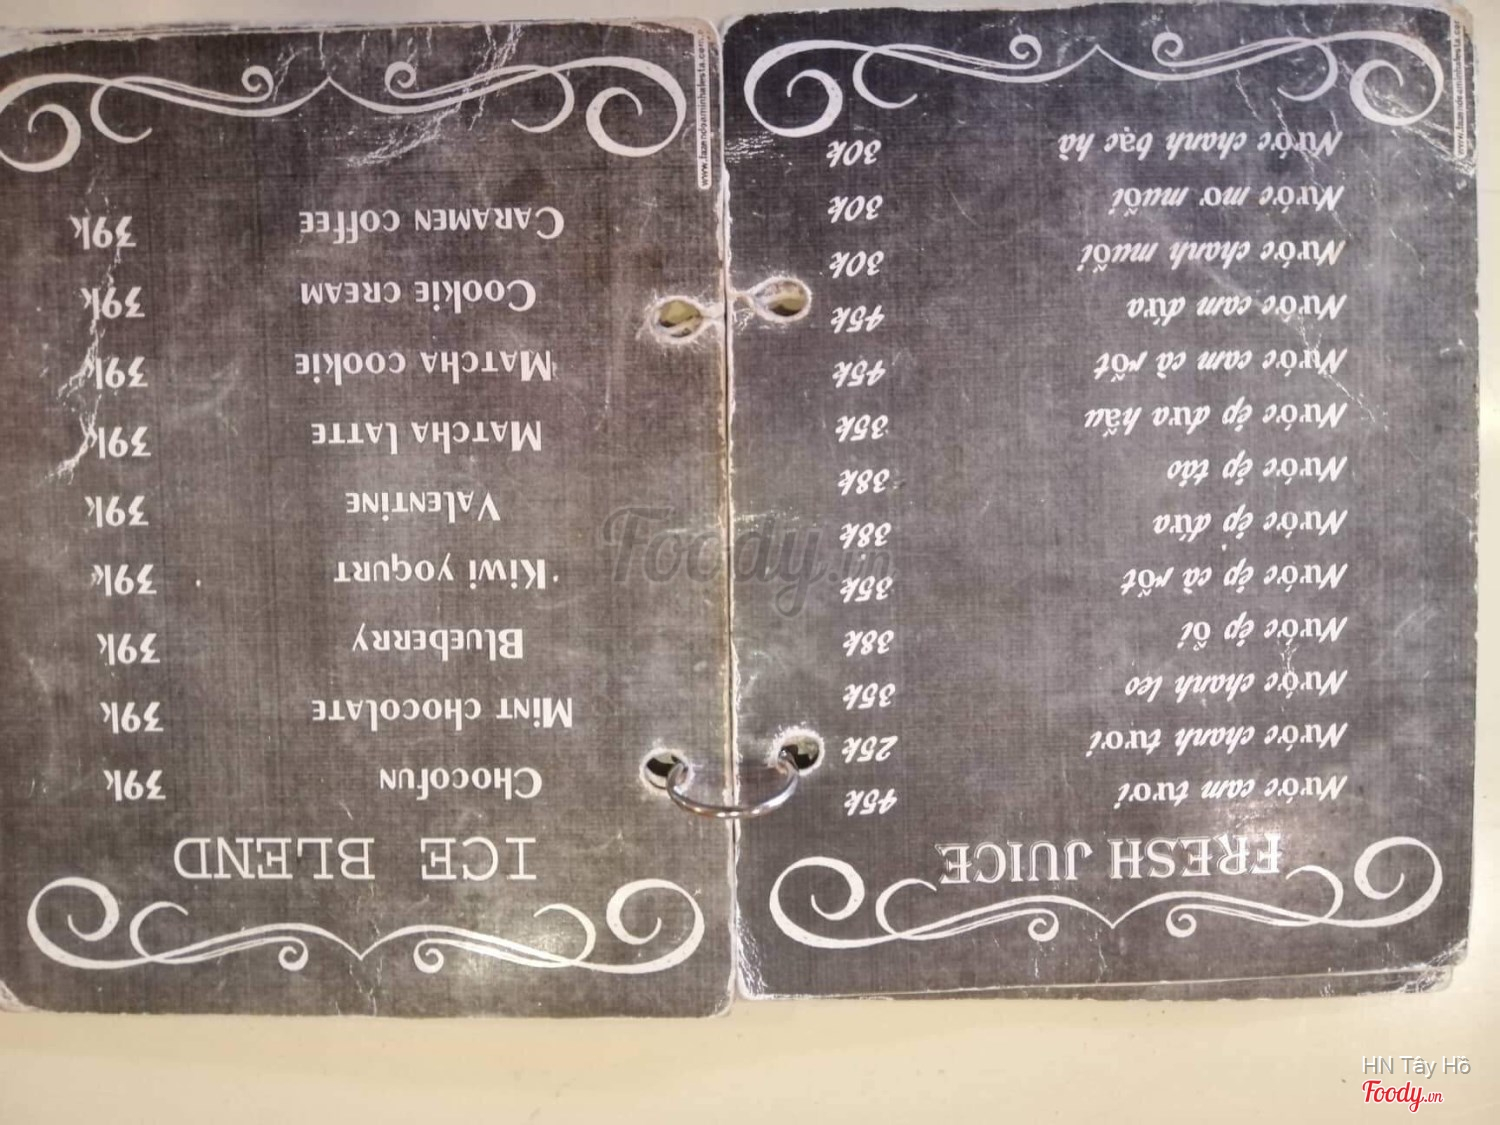 FRESH JUICE
Nước cam tươi 45k
Nước chanh tươi 25k
Nước chanh leo 35k
Nước ép ổi 38k
Nước ép cà rốt 35k
Nước ép dứa 38k
Nước ép táo 38k
Nước ép dưa hấu 35k
Nước cam cà rốt 45k
Nước cam dứa 45k
Nước chanh muối 30k
Nước mơ muối 30k
Nước chanh bạc hà 30k
ICE BLEND
Chocofun 39k
Mint chocolate 39k
Blueberry 39k
Kiwi yogurt 39k
Valentine 39k
Matcha latte 39k
Matcha cookie 39k
Cookie cream 39k
Caramen coffee 39k
Foody.vn
HN Tây Hồ
Foody.vn